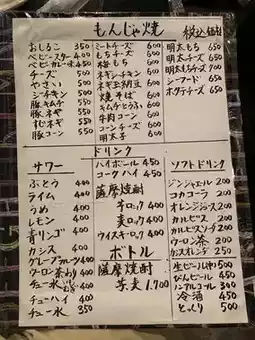 もんじゃ焼 税込価格
おしるこ 350
ベビースター 400
ベビーカレー 450
チーズ 500
やさい 500
シーチキン 500
豚キムチ 500
豚ネギ 500
すじネギ 500
豚コーン 500
ミートチーズ 600
もちチーズ 600
梅もち 600
ネギシチキン 600
ネギ玉納豆 600
焼そば 600
キムチとうふ 600
牛肉コーン 600
コーンチーズ 600
明太子 600
明太もち 650
明太チーズ 650
明太もちチーズ 700
シーフード 650
ポテチーズ 650
ドリンク
サワー
ぶどう 400
ライム 400
うめ 400
レモン 400
青リンゴ 400
カシス 400
グレープフルーツ 400
ウーロン茶わり 400
チュー水 400
チューハイ 400
チュー氷 350
ハイボール 450
コークハイ 450
薩摩焼酎
芋ロック 400
麦ロック 400
ウイスキーロック 400
ボトル
薩摩焼酎
芋麦 1.700
ソフトドリンク
ジンジャエール 200
コカコーラ 200
オレンジジュース 200
カルピス 200
カルピスソーダ 200
ウーロン茶 200
カシスオレンジ 200
生ビール(中) 500
びんビール 450
ノンアルコール 300
冷酒 450
とっくり 500